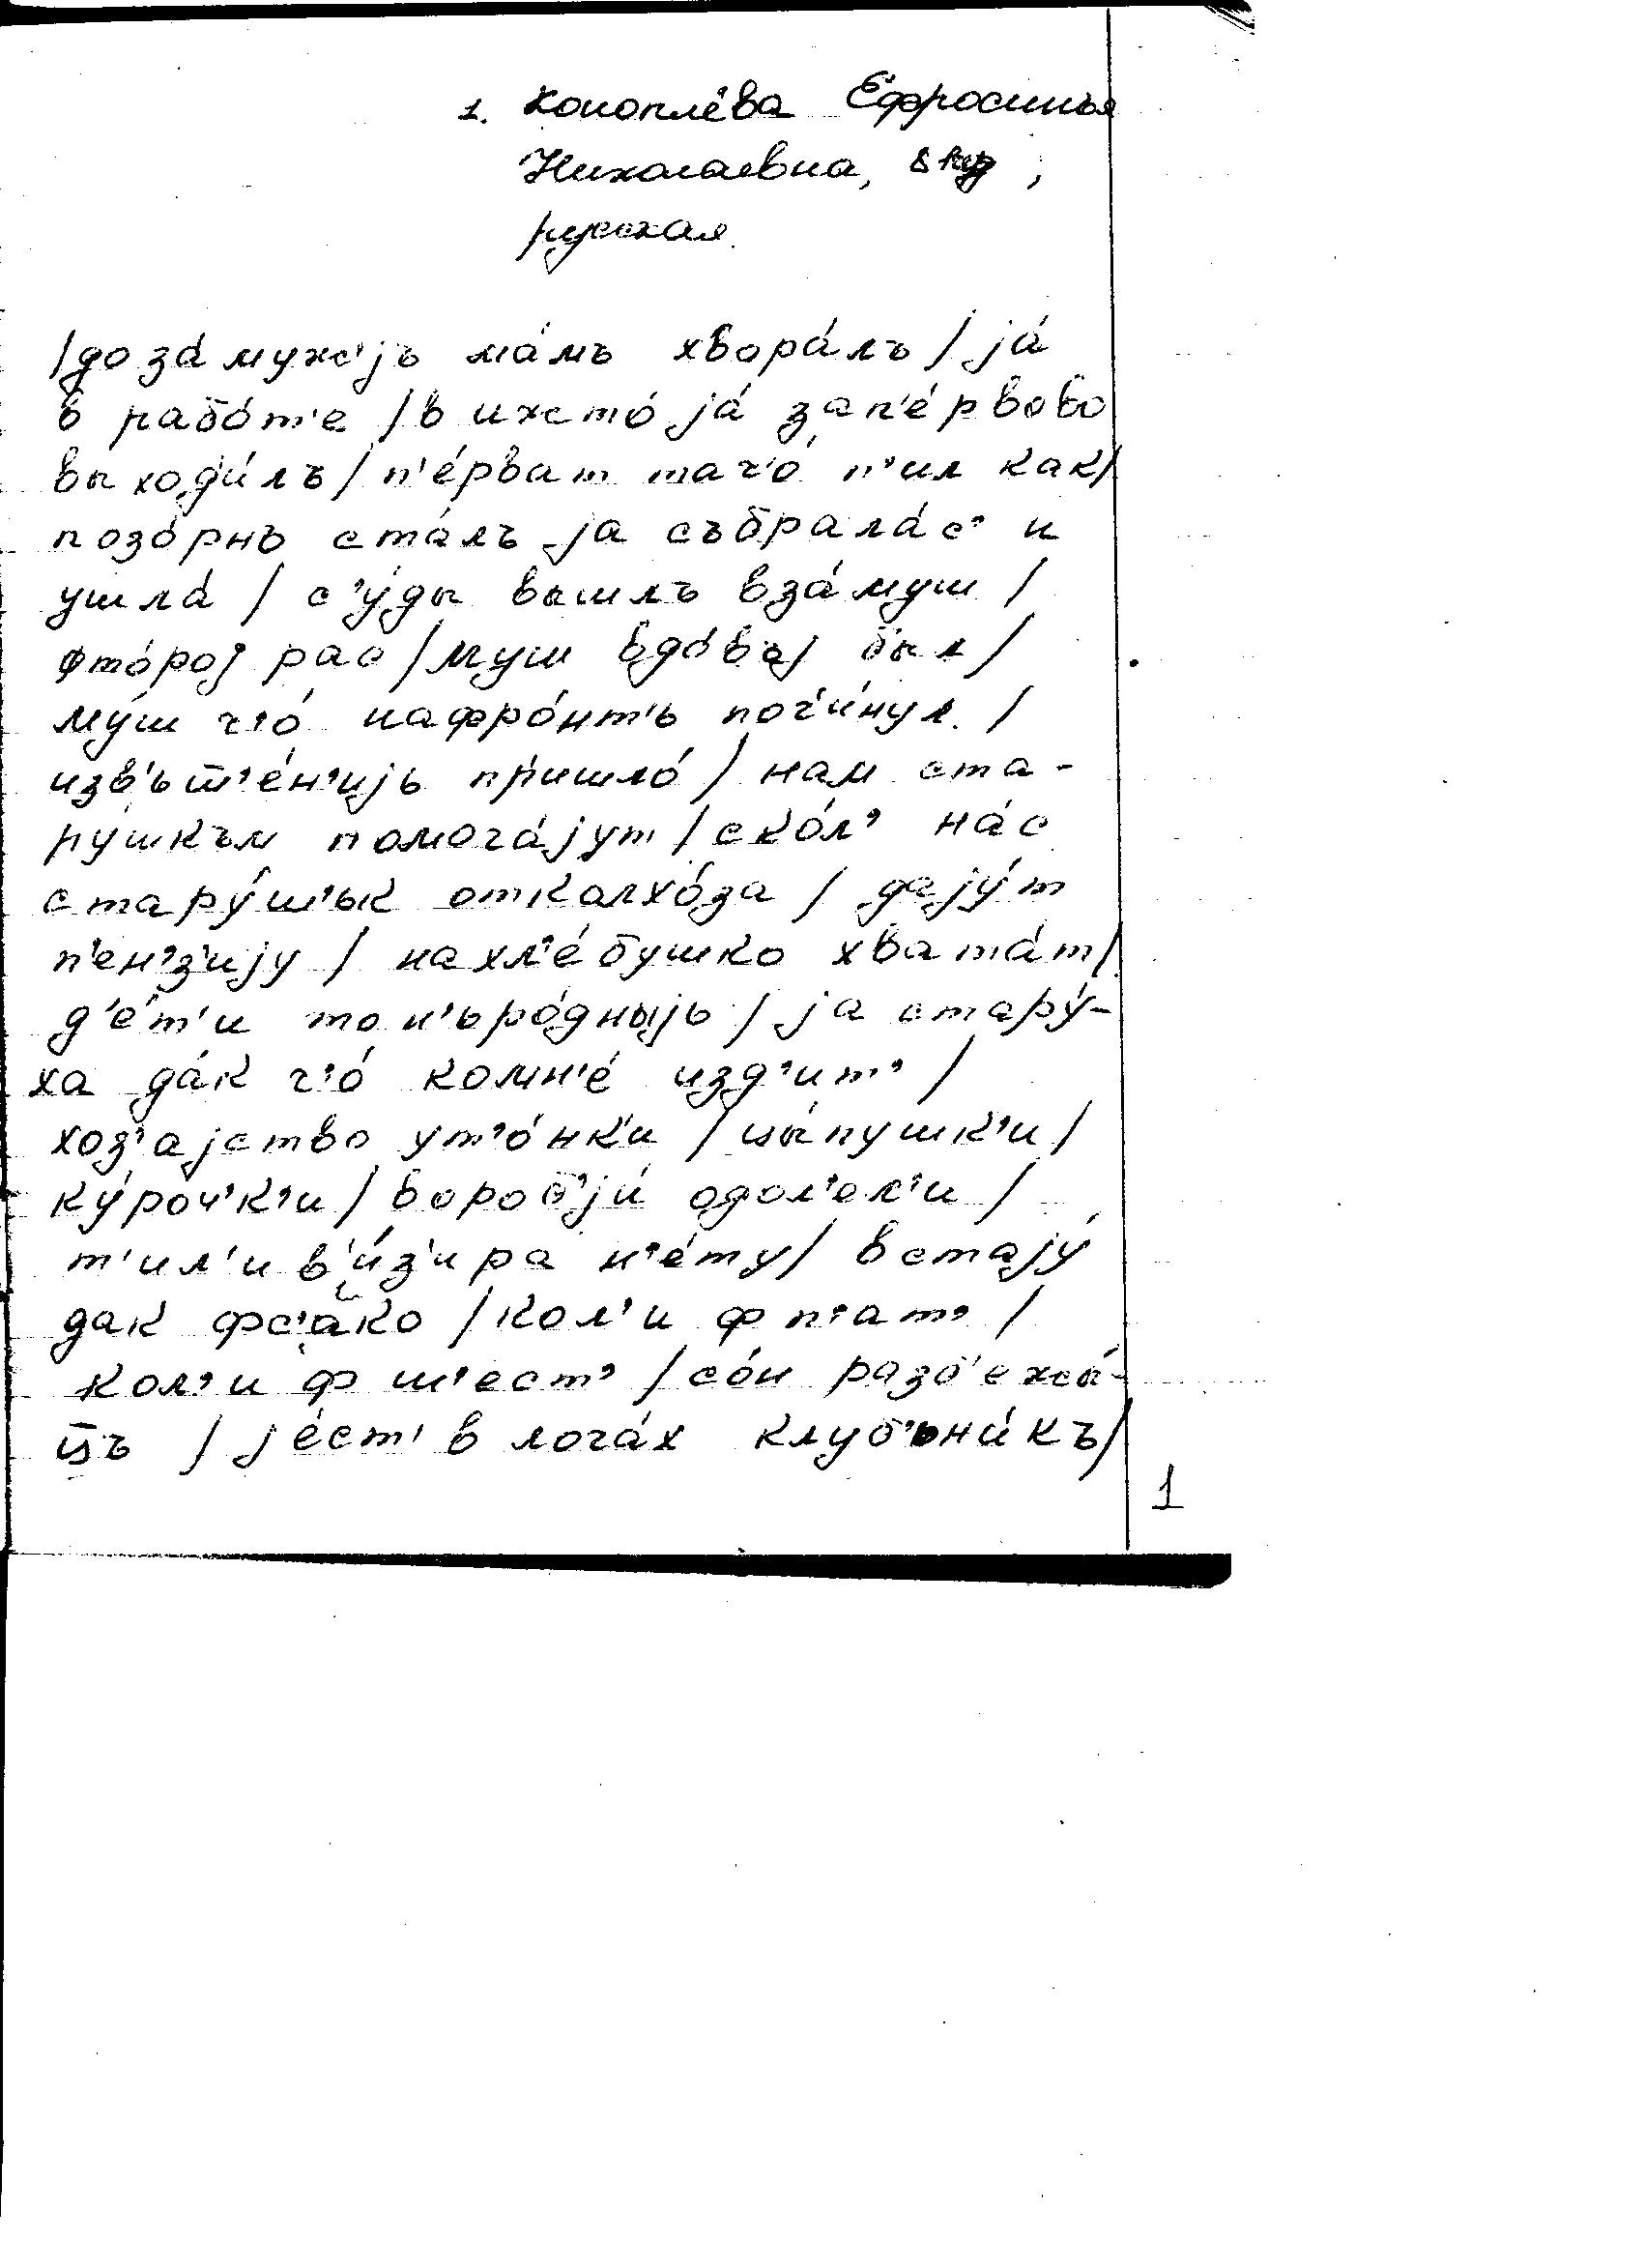 1. Коноплёва Ефросинья
Николаевна, 8 кл.,
русская.
/до за́ муж'јъ ма́мъ хвора́лъ / ја́
в рабо́т'е / в ихсто́ ја́ зап'е́рвово
выход'и́лъ / п'е́рват таг'о́ п'ил как /
позо́рнъ ста́лъ ја събрала́с' и
ушла́ / с'у́ды вышлъ вза́муш /
фто́рој рас / муш вдо́вај был /
му́ш г'о́ нафро́нт'ь пог'и́нул /
изв'ьш̅'е́н'ијь пришло́ / нам ста-
ру́шкъм помога́јут / ско́л' на́с
стару́ш'ьк откалхо́за / дају́т
п'ен'з'ију / нахл'е́бушко хвата́т /
д'е́т'и то н'ьро́дныјь / ја стару́-
ха да́к г'о́ комн'е́ изд'ит' /
хоз'ајство ут'о́нк'и / цы́пушк'и /
ку́роч'к'и / вороб'ји́ одол'ел'и /
т'ил'ив'и́з'ира н'е́ту / встају́
дак фс'а́ко / кол'и ф п'ат' /
кол'и ф ш'ест' / со́н разб'ежа́-
ц̅ъ / је́ст' в лога́х клуб'ьни́къ /
1